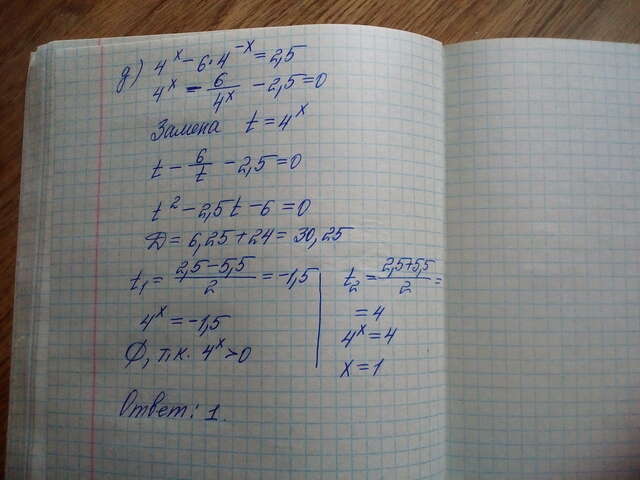 д) 4^x - 6·4^-x = 2,5
4^x - 6/4^x - 2,5 = 0
Замена t = 4^x
t - 6/t - 2,5 = 0
t^2 - 2,5t - 6 = 0
D = 6,25 + 24 = 30,25
t₁ = (2,5 - 5,5)/2 = -1,5
4^x = -1,5
∅, т.к. 4^x > 0
t₂ = (2,5+5,5)/2 =
= 4
4^x = 4
x = 1
Ответ: 1.